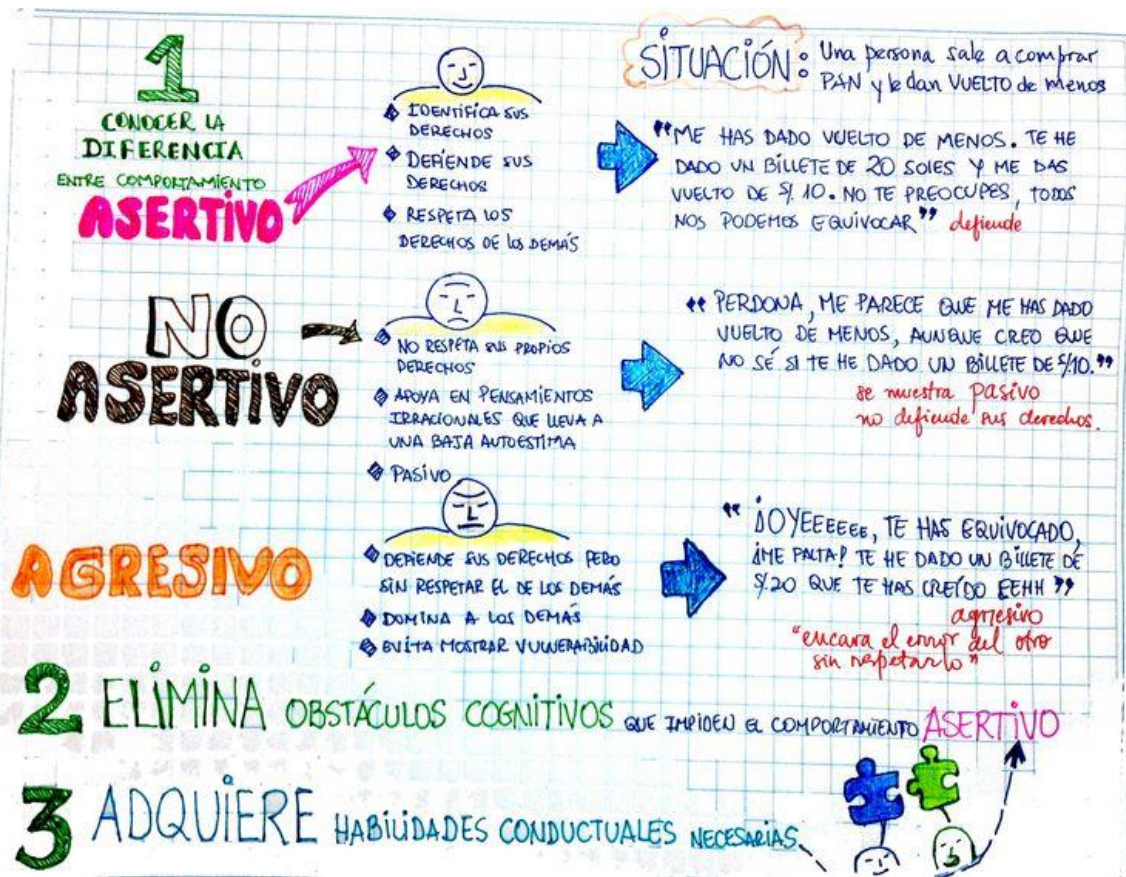 1
CONOCER LA
DIFERENCIA
ENTRE COMPORTAMIENTO
ASERTIVO
IDENTIFICA SUS
DERECHOS
DEFIENDE SUS
DERECHOS
RESPETA LOS
DERECHOS DE LOS DEMÁS
SITUACIÓN: Una persona sale a comprar
PAN y le dan VUELTO de menos
"ME HAS DADO VUELTO DE MENOS. TE HE
DADO UN BILLETE DE 20 SOLES Y ME DAS
VUELTO DE S/. 10. NO TE PREOCUPES, TODOS
NOS PODEMOS EQUIVOCAR" defiende
NO
ASERTIVO
NO RESPETA SUS PROPIOS
DERECHOS
APOYA EN PENSAMIENTOS
IRRACIONALES QUE LLEVA A
UNA BAJA AUTOESTIMA
PASIVO
"PERDONA, ME PARECE QUE ME HAS DADO
VUELTO DE MENOS, AUNQUE CREO QUE
NO SÉ SI TE HE DADO UN BILLETE DE S/.10."
se muestra pasivo
no defiende sus derechos.
AGRESIVO
DEFIENDE SUS DERECHOS PERO
SIN RESPETAR EL DE LOS DEMÁS
DOMINA A LOS DEMÁS
EVITA MOSTRAR VULNERABILIDAD
"¡OYEEEEEE, TE HAS EQUIVOCADO,
¡ME FALTA! TE HE DADO UN BILLETE DE
S/.20 QUE TE HAS CREÍDO EEHH"
agresivo
"encara el error del otro
sin respetarlo"
2 ELIMINA OBSTÁCULOS COGNITIVOS QUE IMPIDEN EL COMPORTAMIENTO ASERTIVO
3 ADQUIERE HABILIDADES CONDUCTUALES NECESARIAS